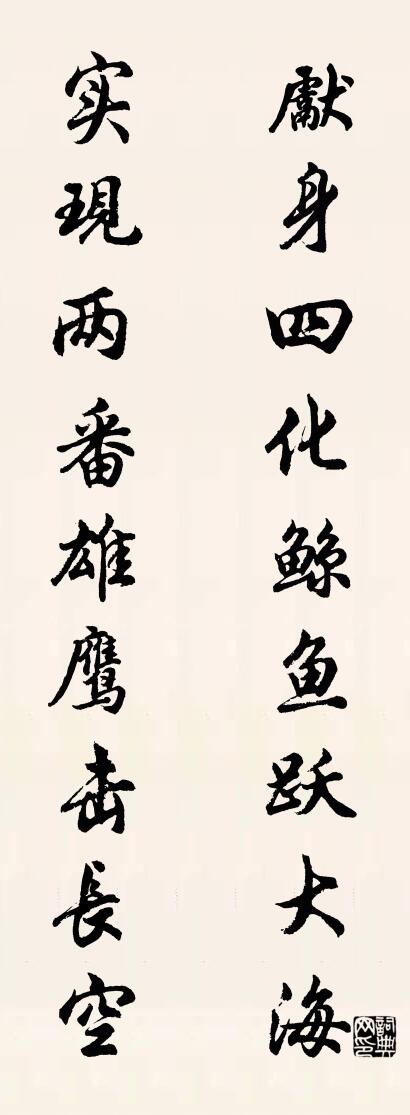 獻身四化鲸鱼跃大海
实現两番雄鹰击長空
詞典网印